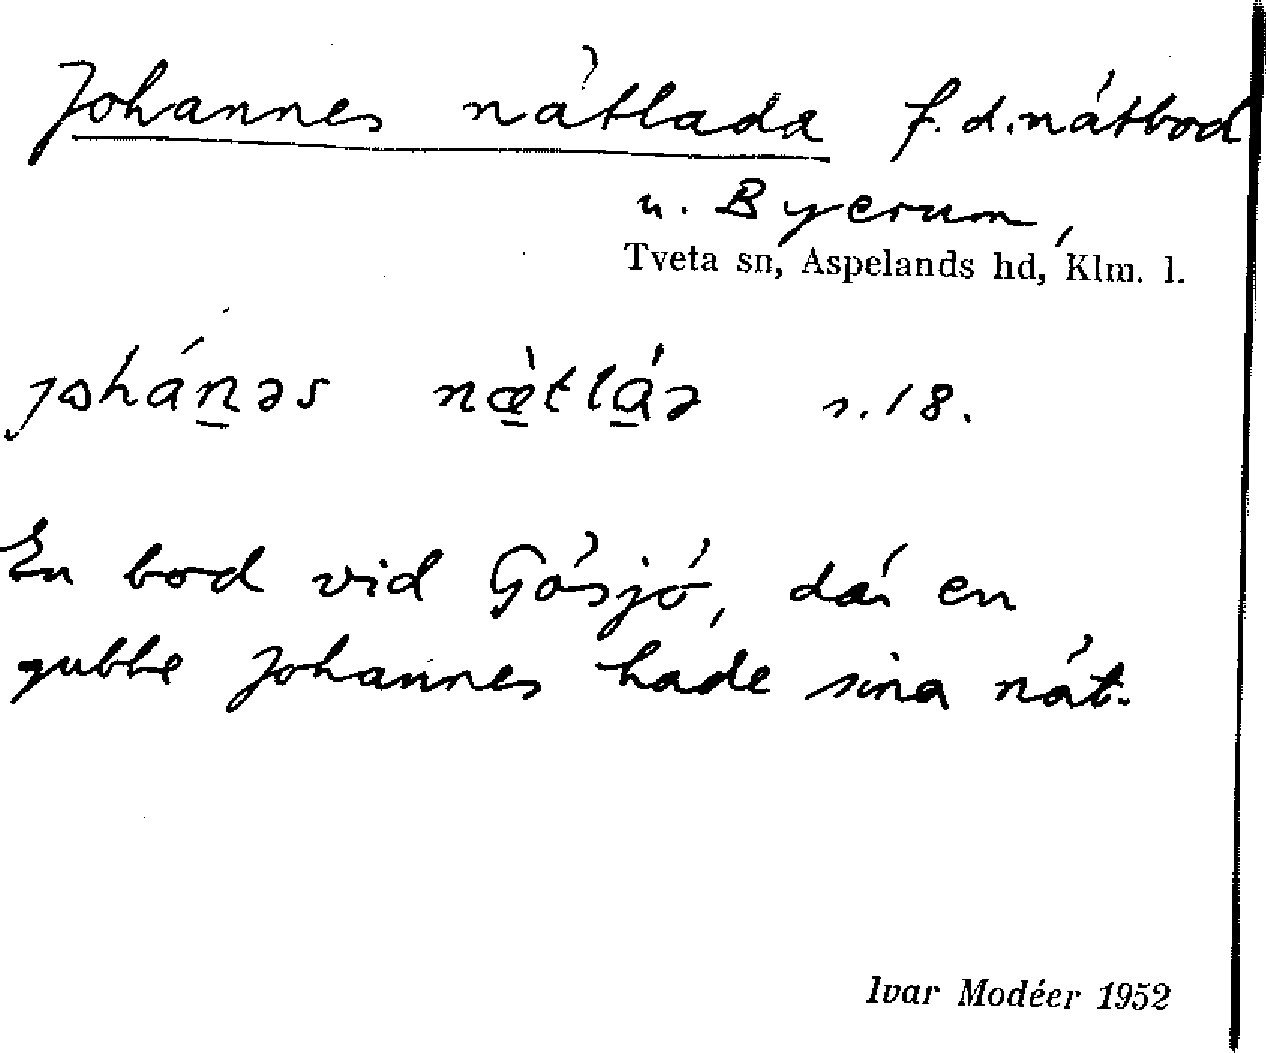 Johannes nätlada f.d. nätbod
u. Byerum,
Tveta sn, Aspelands hd, Klm. l.
johánəs nǽtláə s. 18.
En bod vid Gösjö, där en
gubbe Johannes hade sina nät.
Ivar Modéer 1952